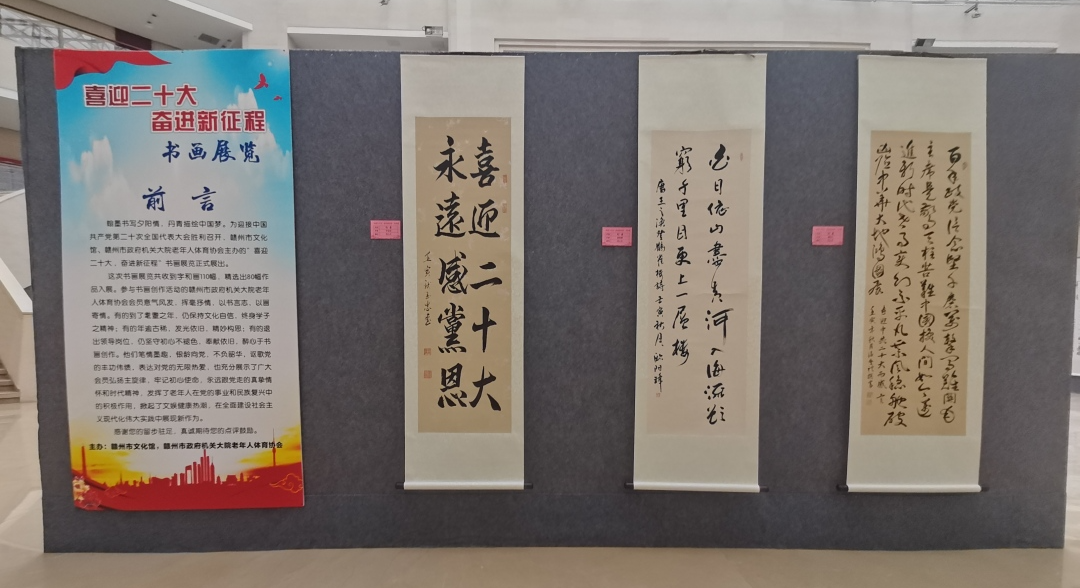 喜迎二十大
奋进新征程
书画展览
前言
翰墨书写夕阳情，丹青描绘中国梦。为迎接中国
共产党第二十次全国代表大会胜利召开，赣州市文化
馆、赣州市政府机关大院老年人体育协会主办的"喜迎
二十大，奋进新征程"书画展览正式展出。
这次书画展览共收到字和画110幅，精选出80幅作
品入展。参与书画创作活动的赣州市政府机关大院老年
人体育协会会员意气风发，挥毫抒情，以书言志，以画
寄情。有的到了耄耋之年，仍保持文化自信，终身学子
之精神；有的年逾古稀，发光依旧，精妙构思；有的退
出领导岗位，仍坚守初心不褪色，奉献依旧，醉心于书
画创作。他们笔情墨趣，银龄向党，不负韶华，讴歌党
的丰功伟绩，表达对党的无限热爱，也充分展示了广大
会员弘扬主旋律，牢记初心使命，永远跟党走的真挚情
怀和时代精神，发挥了老年人在党的事业和民族复兴中
的积极作用，掀起了文娱健康热潮，在全面建设社会主
义现代化伟大实践中展现新作为。
感谢您的留步驻足，真诚期待您的点评鼓励。
主办：赣州市文化馆，赣州市政府机关大院老年人体育协会
喜迎二十大
永遠感黨恩
壬寅秋
白日依山盡黄河入海流欲
窮千里目更上一層樓
唐王之涣登鸛雀樓詩壬寅秋月
百年政党信念坚
主席
進新时代
中华大地